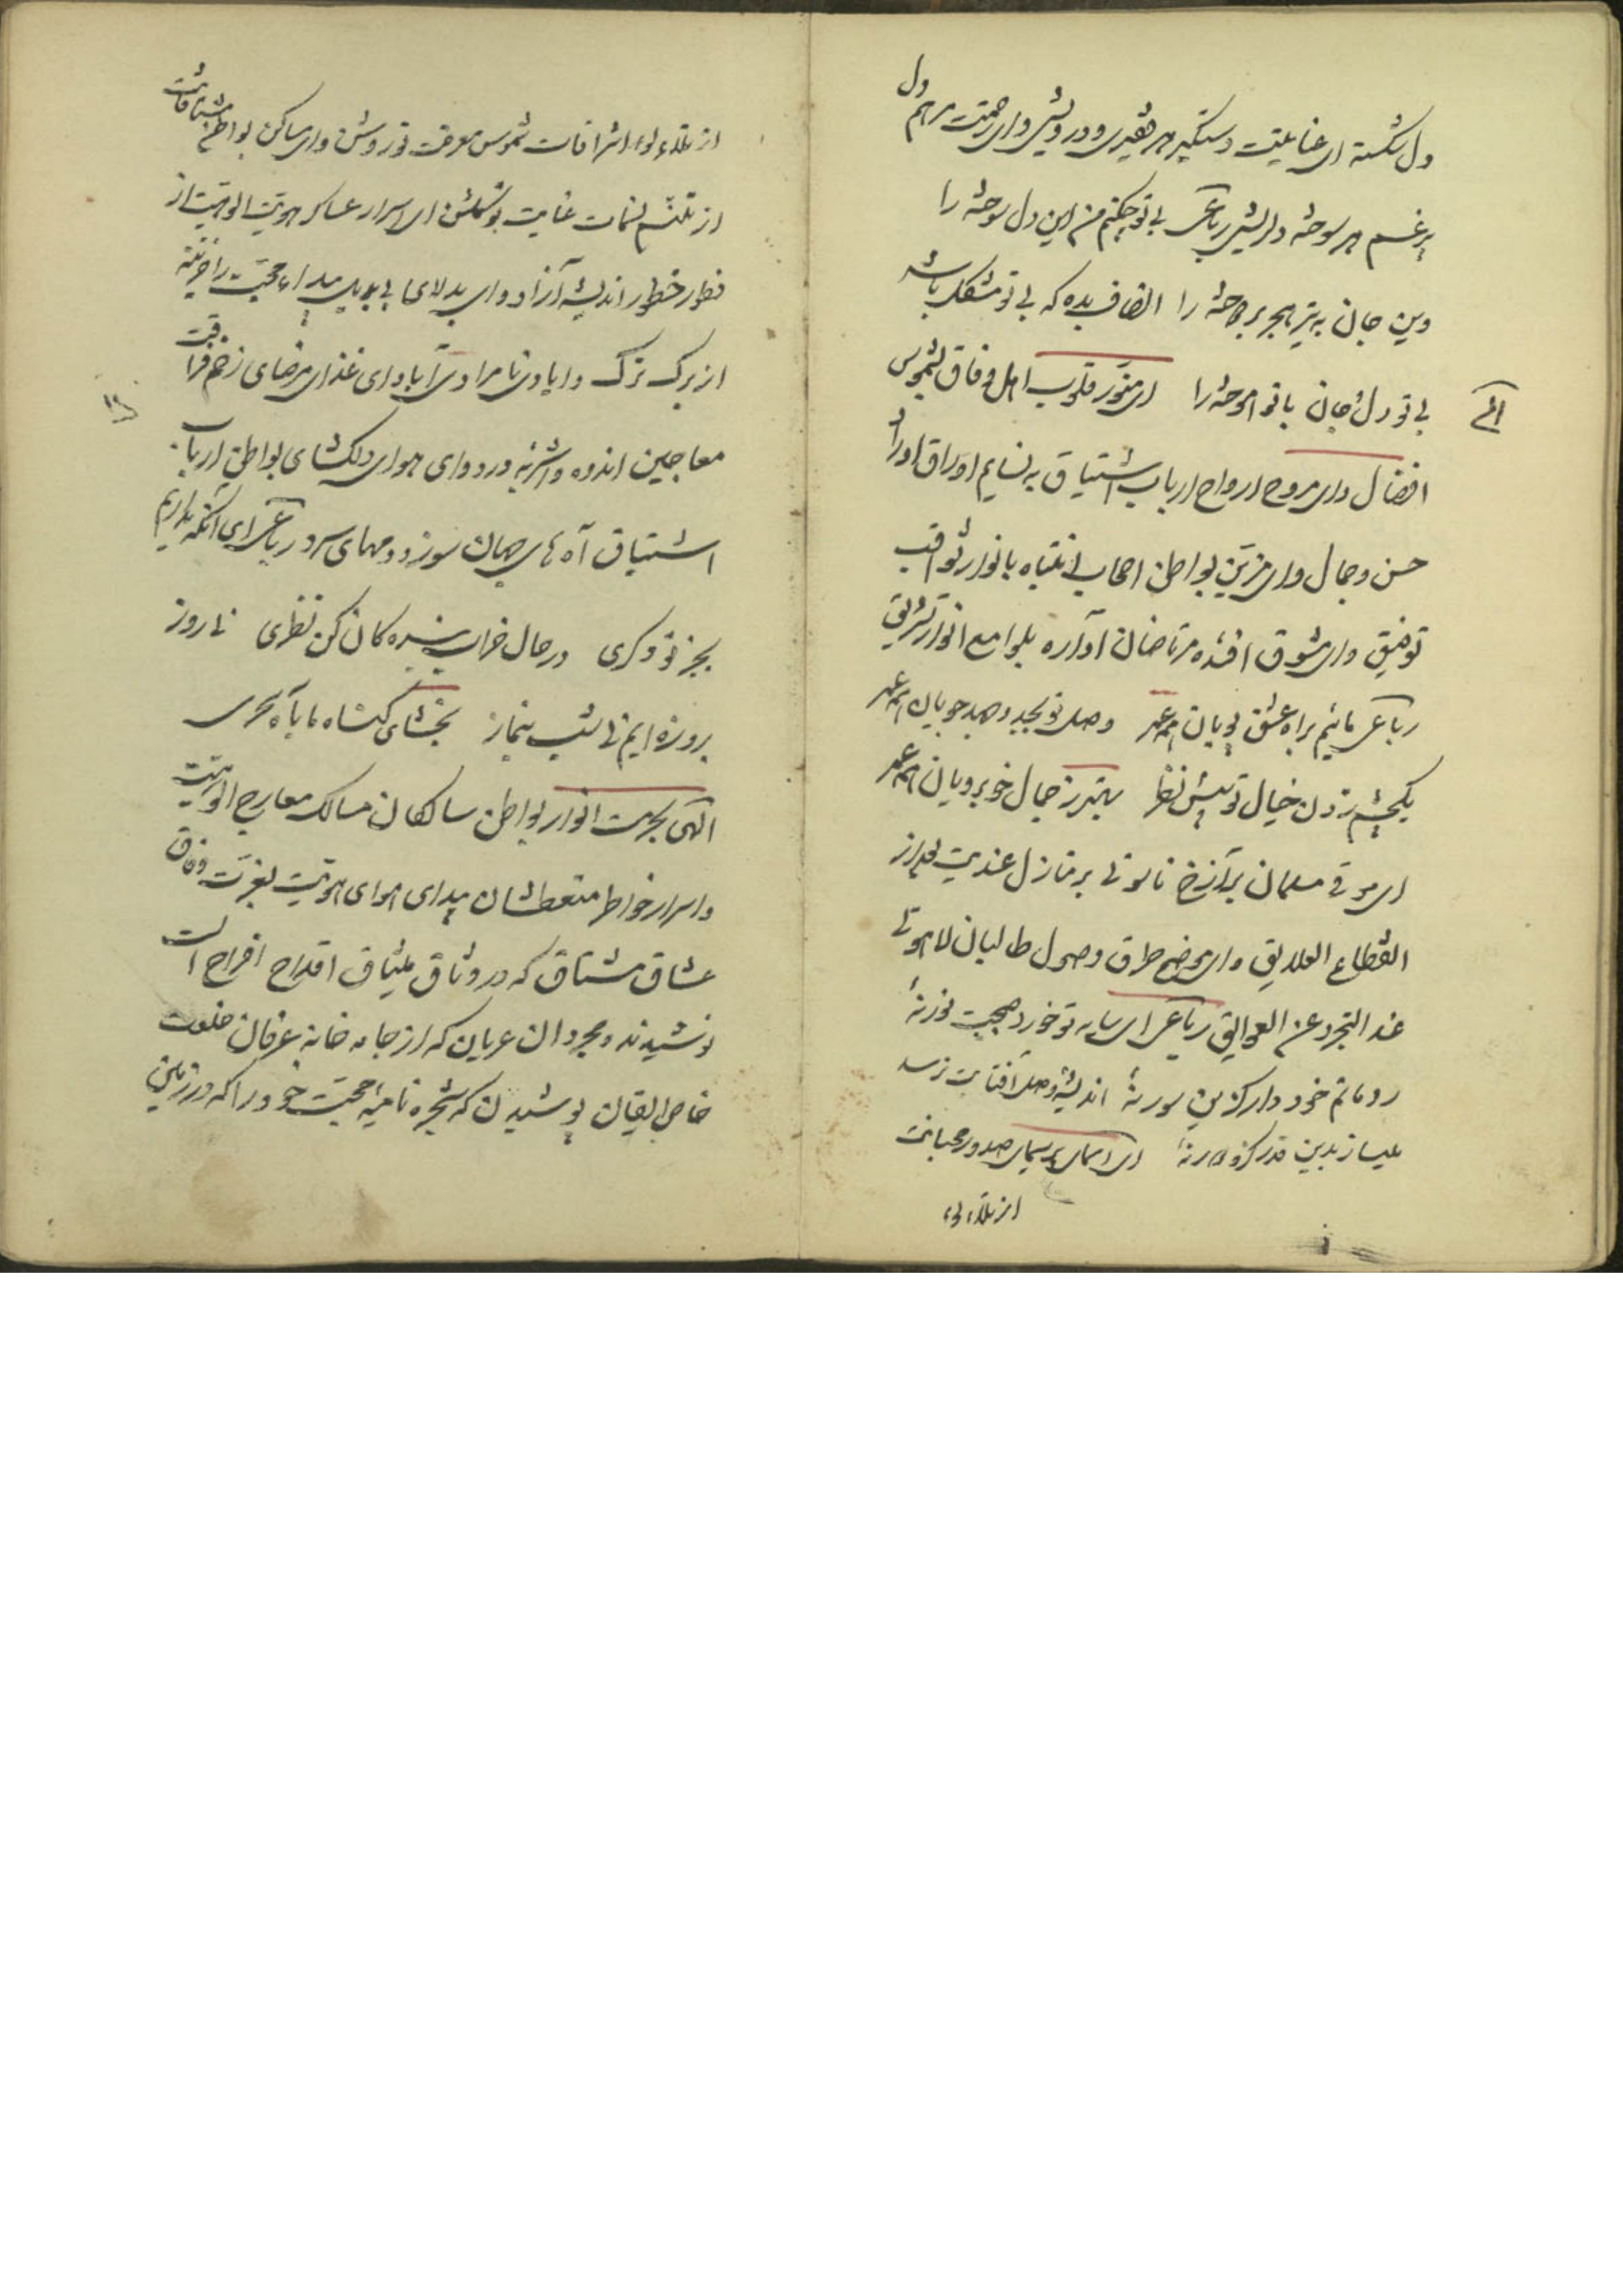 دل شکسته ای عنایتت دستگیر هر فقیری و درویش وای رحمتت مرهم دل
پر غم هر سوخته دلریش رباعی بی تو چکنم من این دل سوخته را
وین جان به تیر هجر بر دوخته را انصاف بده که بی تو مشکل باشد
بی تو دل و جان با تو آموخته را ای منور قلوب اهل وفاق بشموس
افضال وای مروح ارواح ارباب اشتیاق به نسایم اوراق اوراد
حسن و جمال وای مزین بواطن اصحاب انتباه بانوار ثواقب
توفیق وای مشوق افئده مرتاضان آواره بلوامع انوار تشریق
رباعی مائیم براه عشق پویان همه عمر وصل تو بجد و جهد جویان همه عمر
یکچشم زدن خیال تو پیش نظر بهتر ز جمال خوبرویان همه عمر
ای موقع سلمان بر منازل عندیت بعد از
انقطاع العلایق وای موضح طرق وصول طالبان لاهوتی
عند التجرد عن العوایق رباعی ای سایه تو خورد صحبت نور نهٔ
رو ماتم خود دار کزین سور نهٔ اندیشه وصل آفتابت نرسد
میساز بدین قدر کزو دور نهٔ ای صدور محبانت
از تلألؤ
از تلألؤ اشراقات شموس معرفت تو روشن وای ساکن بواطن مشتاقانت
از تنسم نسمات عنایت تو گلشن ای اسرار عساکر هویت الوهیت از
خطور اندیشه آزاد وای بیدای محبت را خزینه
از برگ ترک و نامرادی آباد وای غذای مرضای زخم فراقت
معاجین اندوه و اشربه درد وای هوای دلکشای بواطن ارباب
اشتیاق آه های جهان سوز و دمهای سرد رباعی ای آنکه نداریم
بجز تو دگری در حال خراب بنده کان کن نظری نا روز
بروزه ایم نی شب بنماز بخشای گناه ما بآه سحری
الهی بحرمت انوار بواطن سالکان مسالک معارج الوهیت
و اسرار خواطر متعطشان بیدای هوای هویت بعزت وفاق
عشاق مشتاق که در وثاق میثاق اقداح افراح الست
نوشیدند و مجردان عریان که از جامه خانه عرفان خلعت
خاص ایقان پوشیدن که شجره نامیه محبت خود را که در زمین